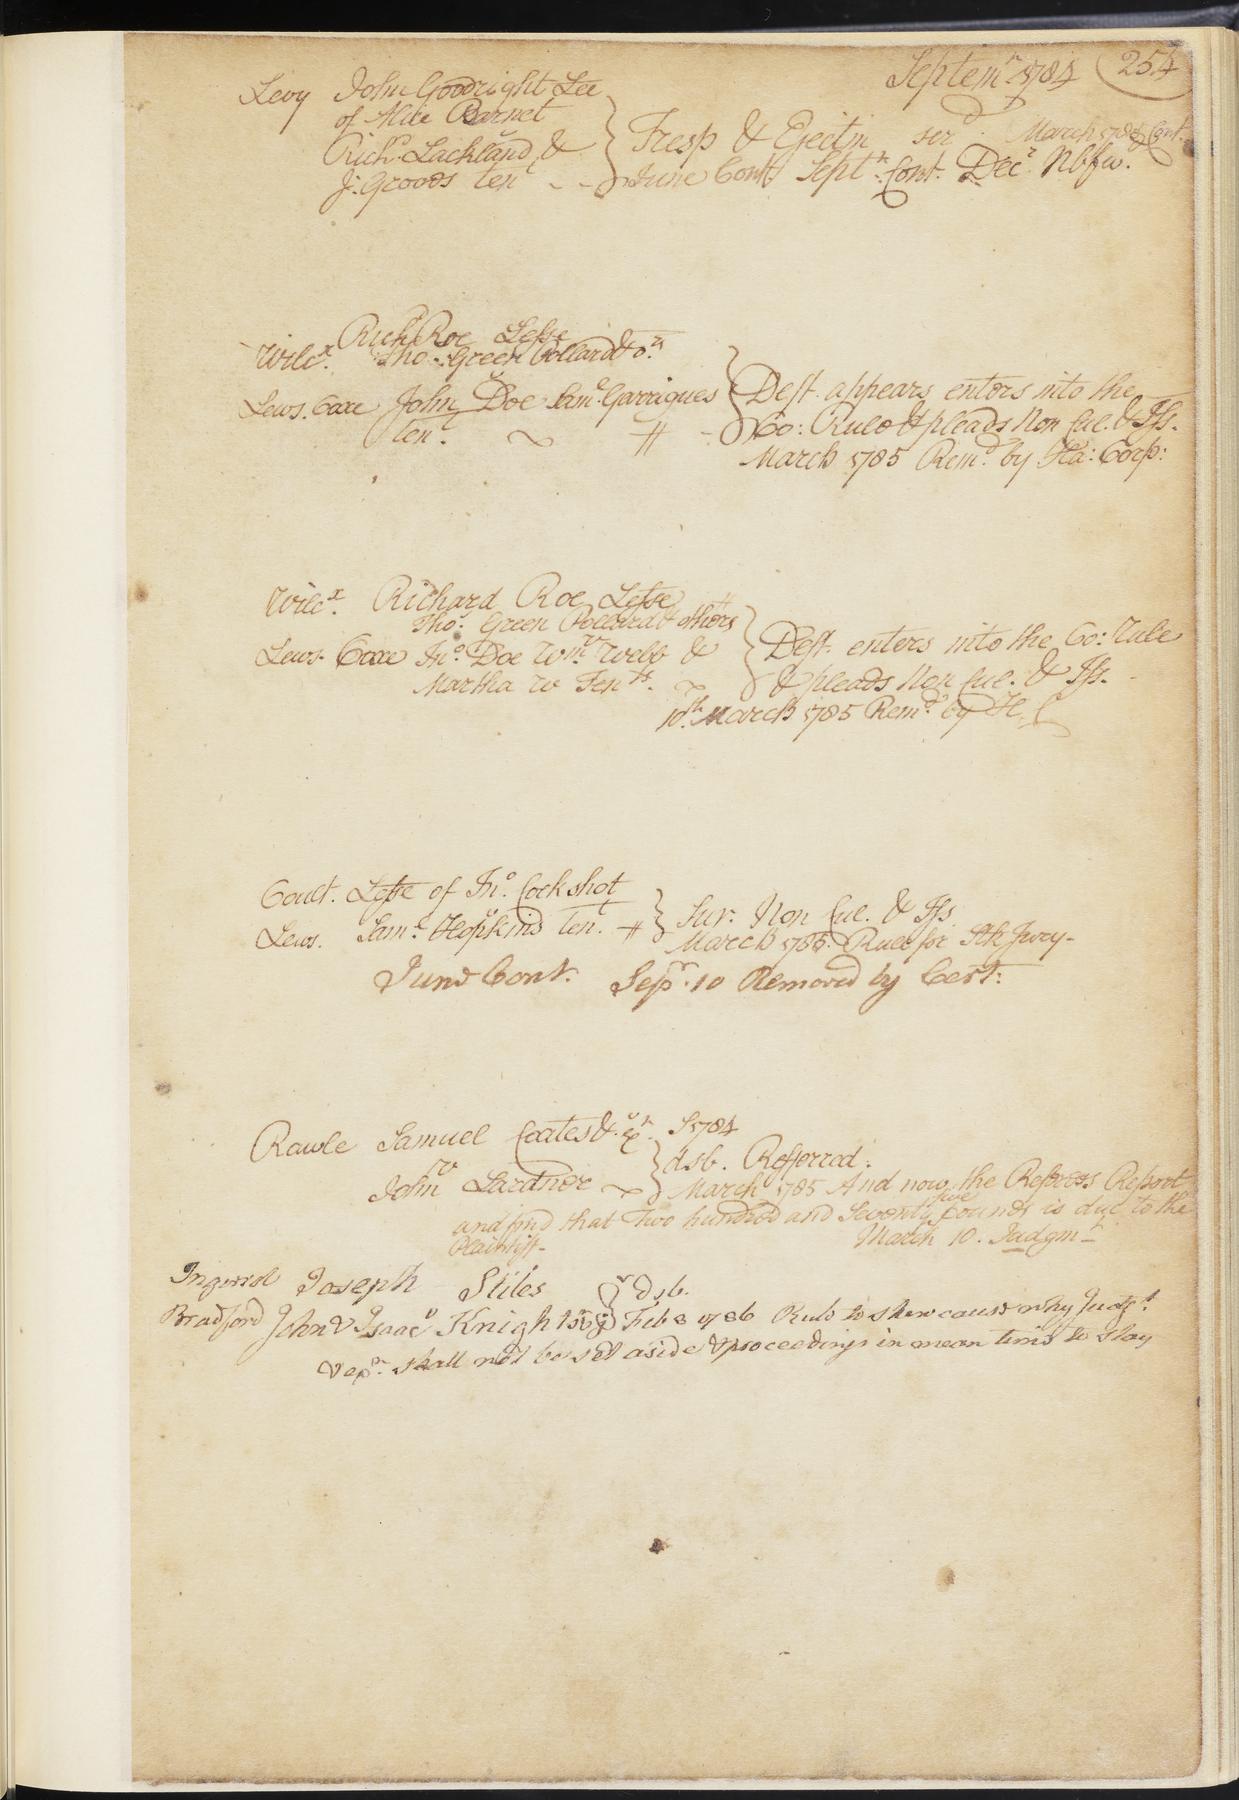 Septemr. 1784 254
Levy John Goodright Lee
of Alice Barnet
v
Richd. Lackland, &
J. Groves tent
Tresp & Ejectm serd. March 1785 Cont.
June Cont Septr. Cont. Decr.
Wilcx. Richd Roe Lesse
Tho. Green Pollard & ors.
v
Lews. Coxe John Doe Saml. Garrigues
ten. #
Deft. appears enters into the
Co: Rule & pleads Non Cul. & Iss.
March 1785 Remd. by Ha: Corp:
Wilcx. Richard Roe Lesse
Thos. Green Pollard & others
v
Lews. Coxe Jno. Doe Wm. Webb &
Martha w Tents.
Deft. enters into the Co: Rule
& pleads Non Cul. & Iss.
10th. March 1785 Remd. by H C
Coult. Lesse of Jno. Cockshot
v
Lews. Saml. Hopkins ten. #
Sur. Non Cul. & Iss
March 1785. Rule for Stk Jury-
June Cont. Sepr. 10 Removed by Cert:
Rawle Samuel Coates & Exr. S 1784
v
John Lardner
dsb. Referred.
March 1785 And now the Referees Report
and find that Two hundred and Seventy five pounds is due to the
Plaintiff- March 10. Judgmt
Ingersol Joseph Stiles dsb.
v
Bradford John & Isaac Knight Feb 8 1786 Rule to shew cause why Judgt.
& exn. shall not be set aside & proceedings in mean time to stay